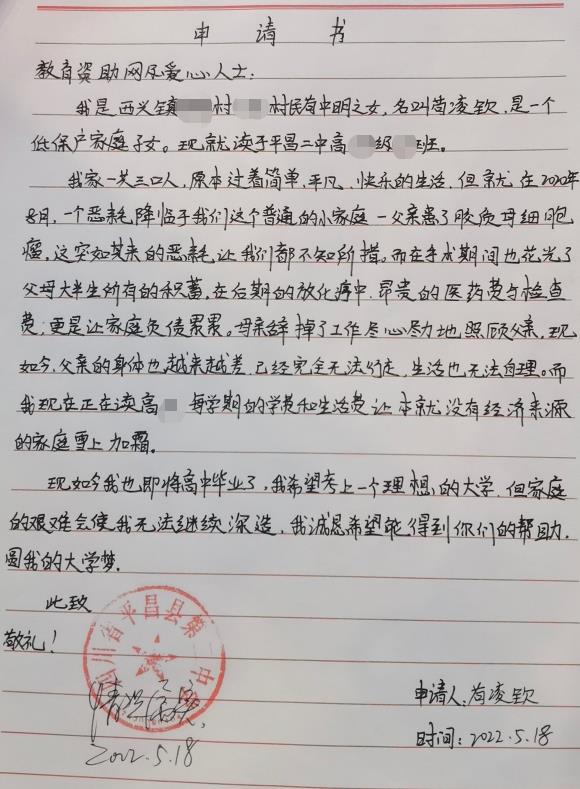 申请书
教育资助网及爱心人士:
我是西义镇村村民苟中明之女,名叫苟凌钦,是一个
低保户家庭子女。现就读于平昌二中高级班。
我家一共三口人,原本过着简单、平凡、快乐的生活,但就在2020年
8月,一个恶耗降临于我们这个普通的小家庭—父亲患了胶质母细胞
瘤,这突如其来的恶耗让我们都不知所措。而在手术期间也花光了
父母大半生所有的积蓄,在后期的放化疗中,昂贵的医药费与检查
费,更是让家庭负债累累。母亲辞掉了工作尽心尽力地照顾父亲,现
如今,父亲的身体也越来越差,已经完全无法行走,生活也无法自理。而
我现在正在读高每学期的学费和生活费让本就没有经济来源
的家庭雪上加霜。
现如今我也即将高中毕业了,我希望考上一个理想的大学,但家庭
的艰难会使我无法继续深造,我诚恳希望能得到你们的帮助,
圆我的大学梦。
此致
敬礼!
四川省平昌县第二中学
情况属实,
2022.5.18
申请人:苟凌钦
时间:2022.5.18